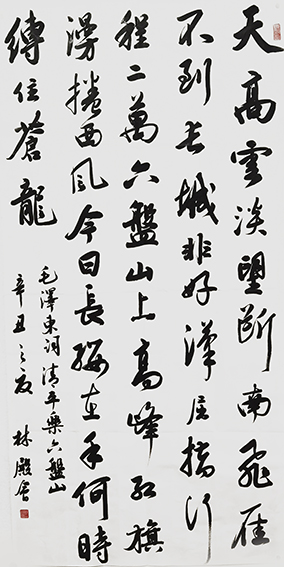 天高雲淡望斷南飛雁
不到長城非好漢屈指行
程二萬六盤山上高峰紅旗
漫捲西風今日長纓在手何時
縛住蒼龍
毛澤東詞清平樂六盤山
辛丑之夏 林殿